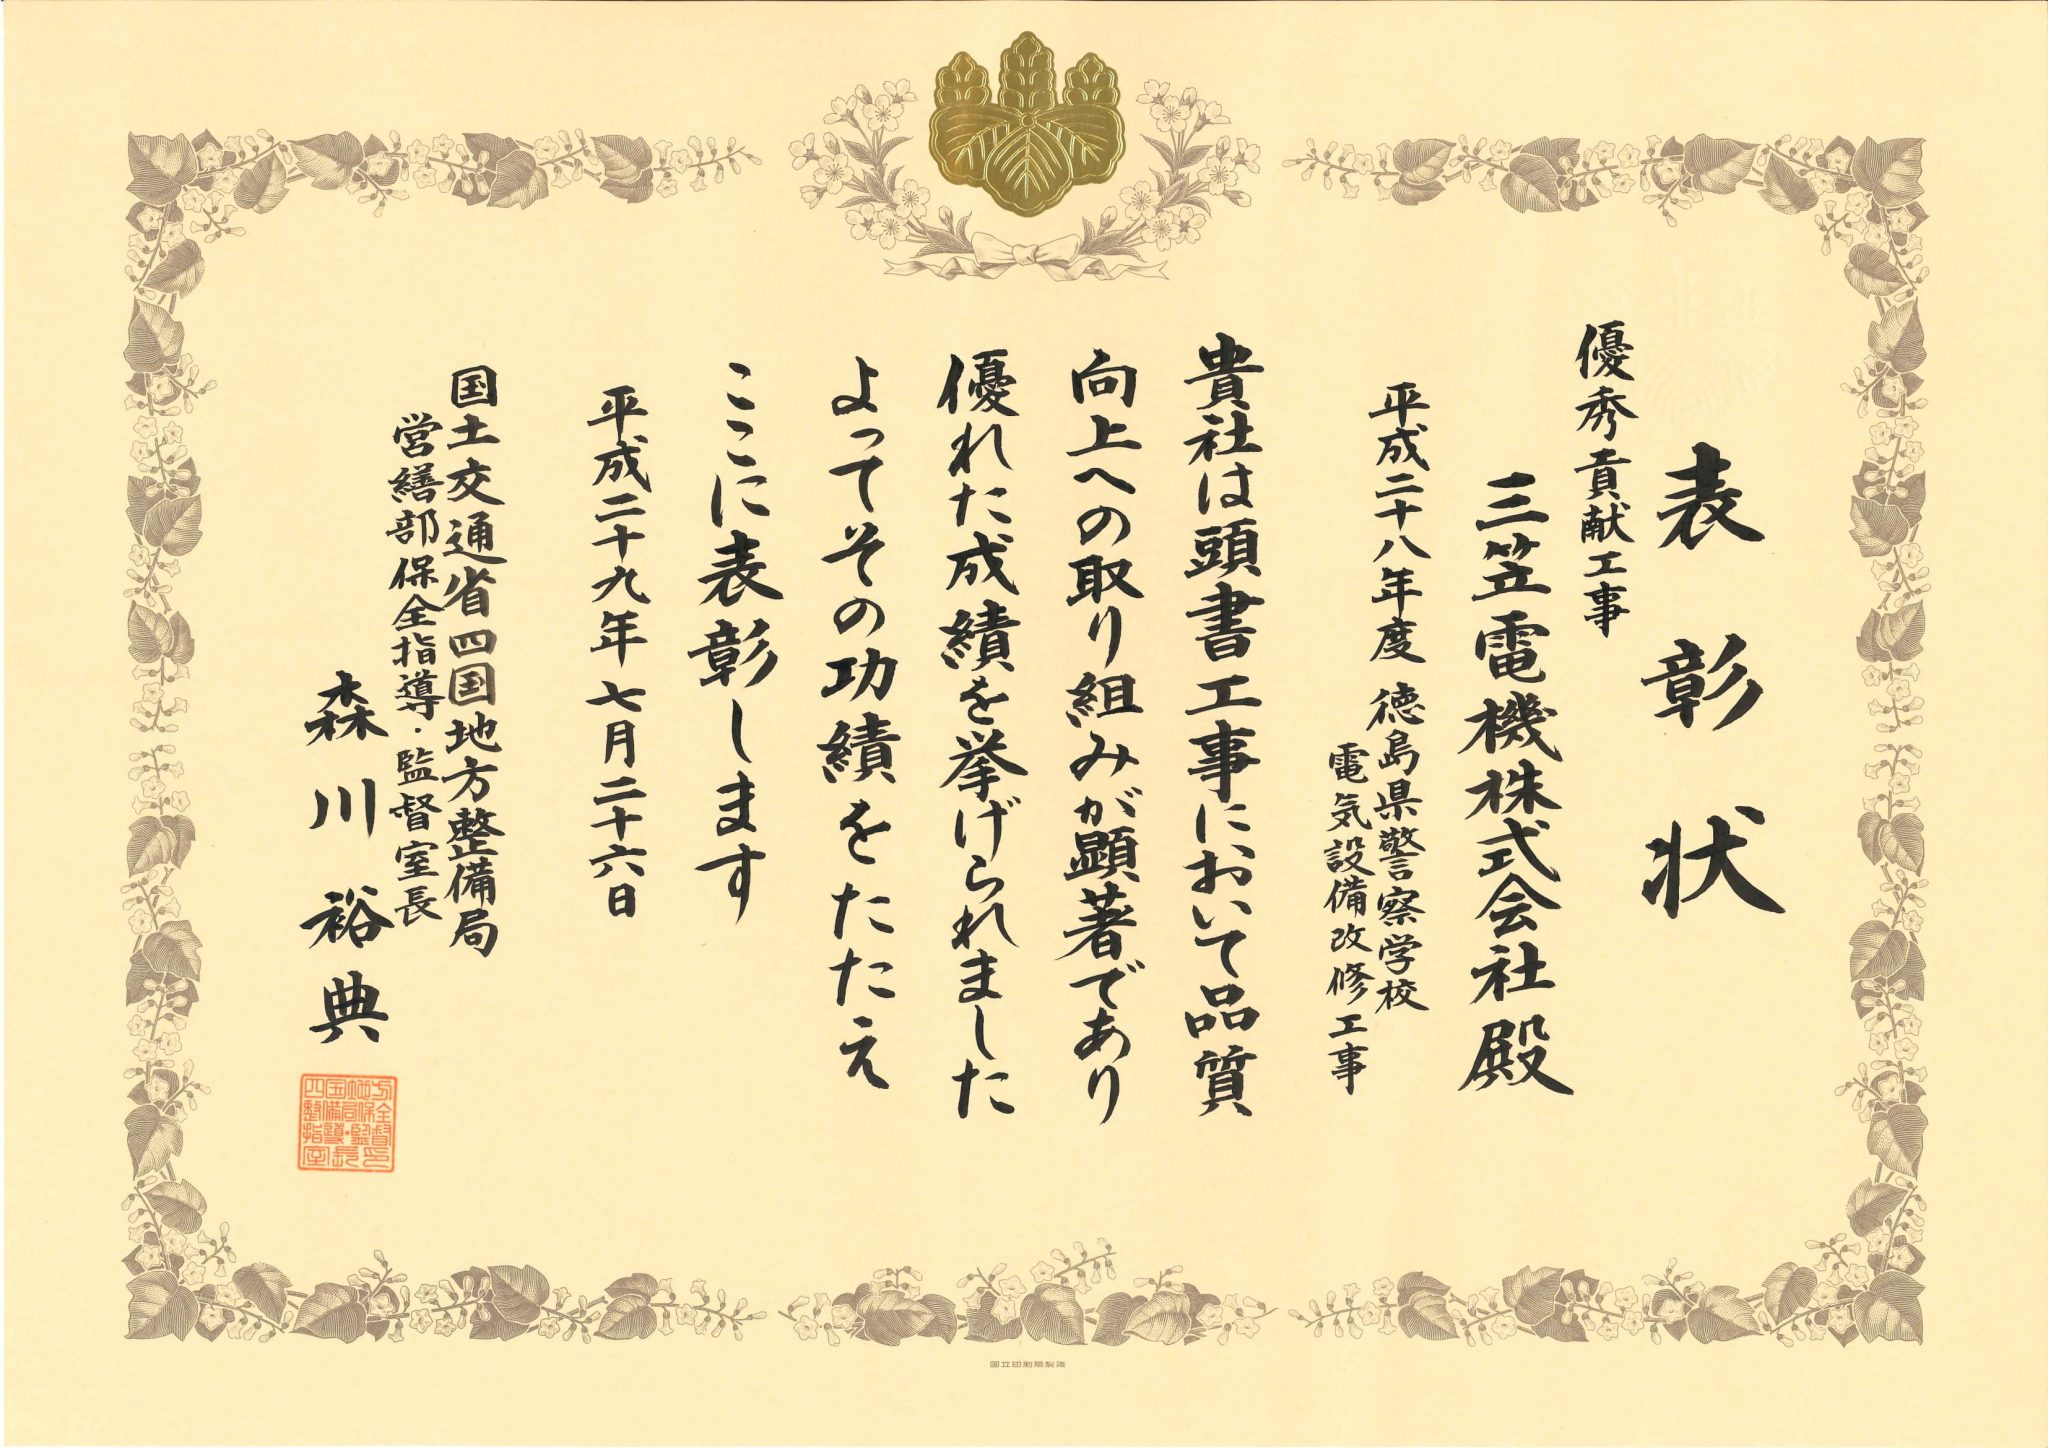 表彰状
優秀貢献工事
三笠電機株式会社殿
平成二十八年度 徳島県警察学校
電気設備改修工事
貴社は頭書工事において品質
向上への取り組みが顕著であり
優れた成績を挙げられました
よってその功績をたたえ
ここに表彰します
平成二十九年七月二十六日
国土交通省四国地方整備局
営繕部保全指導・監督室長
森川裕典
国立印刷局製造